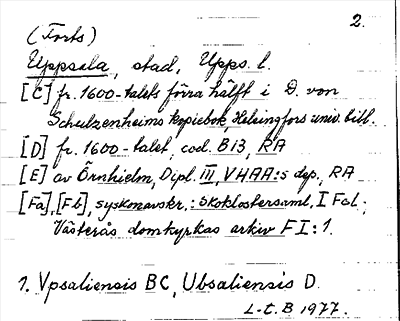 2.
(Forts)
Uppsala, stad, Upps. l.
[C] fr. 1600-talets förra hälft i D. von
Schulzenheims kopiebok, Helsingfors univ. bibl.
[D] fr. 1600-talet, cod. B13, RA
[E] av Örnhielm, Dipl. III, VHAA:s dep., RA
[Fa], [Fb], syskonavskr.: Skoklostersaml. I Fol;
Västerås domkyrkas arkiv F I:1.
1. Vpsaliensis BC, Ubsaliensis D.
L-t. B 1977.